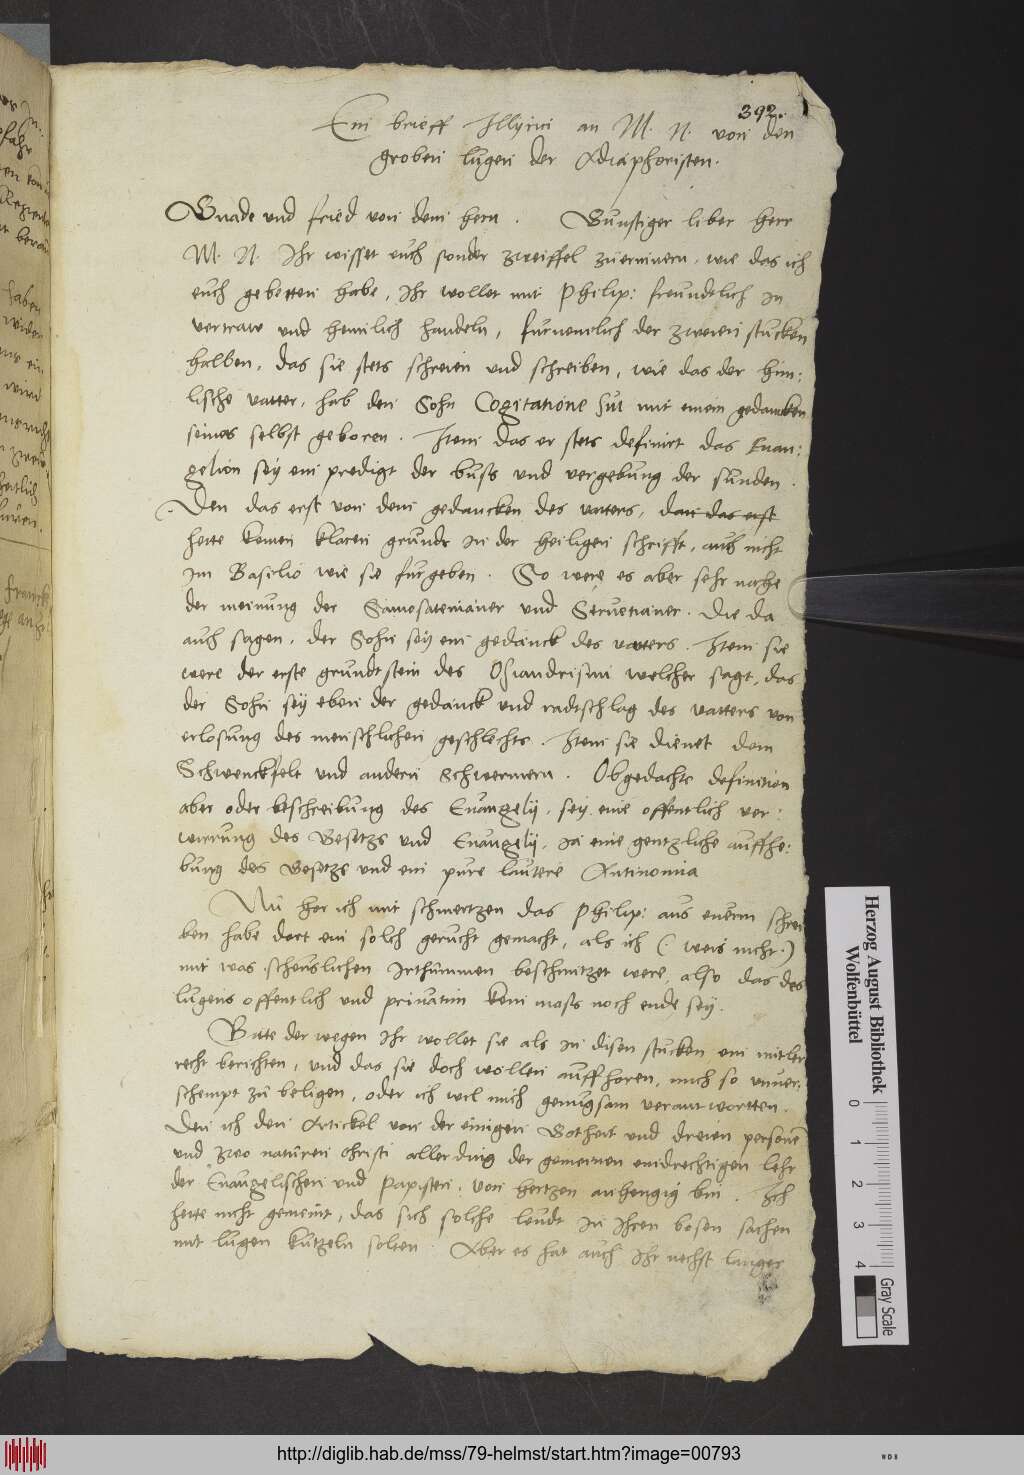 392.
Ein brieff Illyrici an M. N. von den
groben lugen der Adiaphoristen.
Gnade und fried von dem hern. Gunstiger liber herr
M. N. Ihr wisset euch sonder zweiffel zuerinnern, wie das ich
euch gebetten habe, Ihr wollet mit Philip: freundtlich in
vertraw und heimlich handeln, furnemlich der zweien stucken
halben, das sie stets schreien und schreiben, wie das der him:
lische vatter, hab den Sohn Cogitatione sui mit einem gedancken
seines selbst geboren. Item das er stets definirt das Euan:
gelion sey ein predigt der buss und vergebung der sunden.
Den das erst von dem gedancken des vatters, dan das erst
hette keinen klaren grundt in der heiligen schrifft, auch nicht
im Basilio wie sie furgeben. So were es aber sehr nahe
der meinung der Samosatenianer und Seruetianer. Die da
auch sagen, der Sohn sey ein gedanck des vatters. Item sie
were der erste grundtstein des Osiandrismi welcher sagt, das
der Sohn sey eben der gedanck und radtschlag des vatters von
erlosung des menschlichen geschlechts. Item sie dienet dem
Schwenckfelt und andern Schwermern. Obgedachte definition
aber oder beschreibung des Euangelij, sey eine offentlich ver:
wirrung des Gesetzs und Euangelij, ia eine gentzliche auffhe:
bung des Gesetzs und ein pure lautere Antinomia
Nu hor ich mit schmertzen das Philip: aus euerm schrei
ben habe dort ein solch gerucht gemacht, als ich (weis nicht)
mit was scheuslichen Irthummen beschmitzet were, also das des
lugens offentlich und priuatim kein mass noch ende sey.
Bitte derwegen Ihr wollet sie als in disen stucken ein mitler
recht berichten, und das sie doch wollen auffhoren, mich so unuer:
schempt zu beligen, oder ich wil mich genugsam verantwortten.
Den ich den Artickel von der einigen Gotheit und dreien personen
und zwo naturen Christi allerding der gemeinen eindrechtigen lehr
der Euangelischen und Papisten, von hertzen anhengig bin. Ich
hette nicht gemeint, das sich solche leudt in ihren bosen sachen
mit lugen kutzeln solten. Aber es hat auch ihr nechst langer
Herzog August Bibliothek
Wolfenbüttel
0 1 2 3 4
Gray Scale
http://diglib.hab.de/mss/79-helmst/start.htm?image=00793